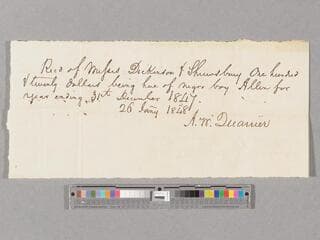 Rec'd of Messrs Dickinson & Shrewsbury One hundred
& twenty Dollars being hire of negro boy Allen for
year ending 31st December 1847.
26 Jany 1848
A. W. Quarrier